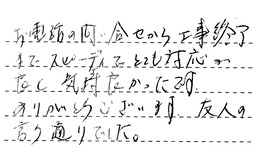 お電話の問い合せから工事終了
まで スピーディでとても対応が
良く 気持良かったです
ありがとうございます 友人の
言う通りでした。